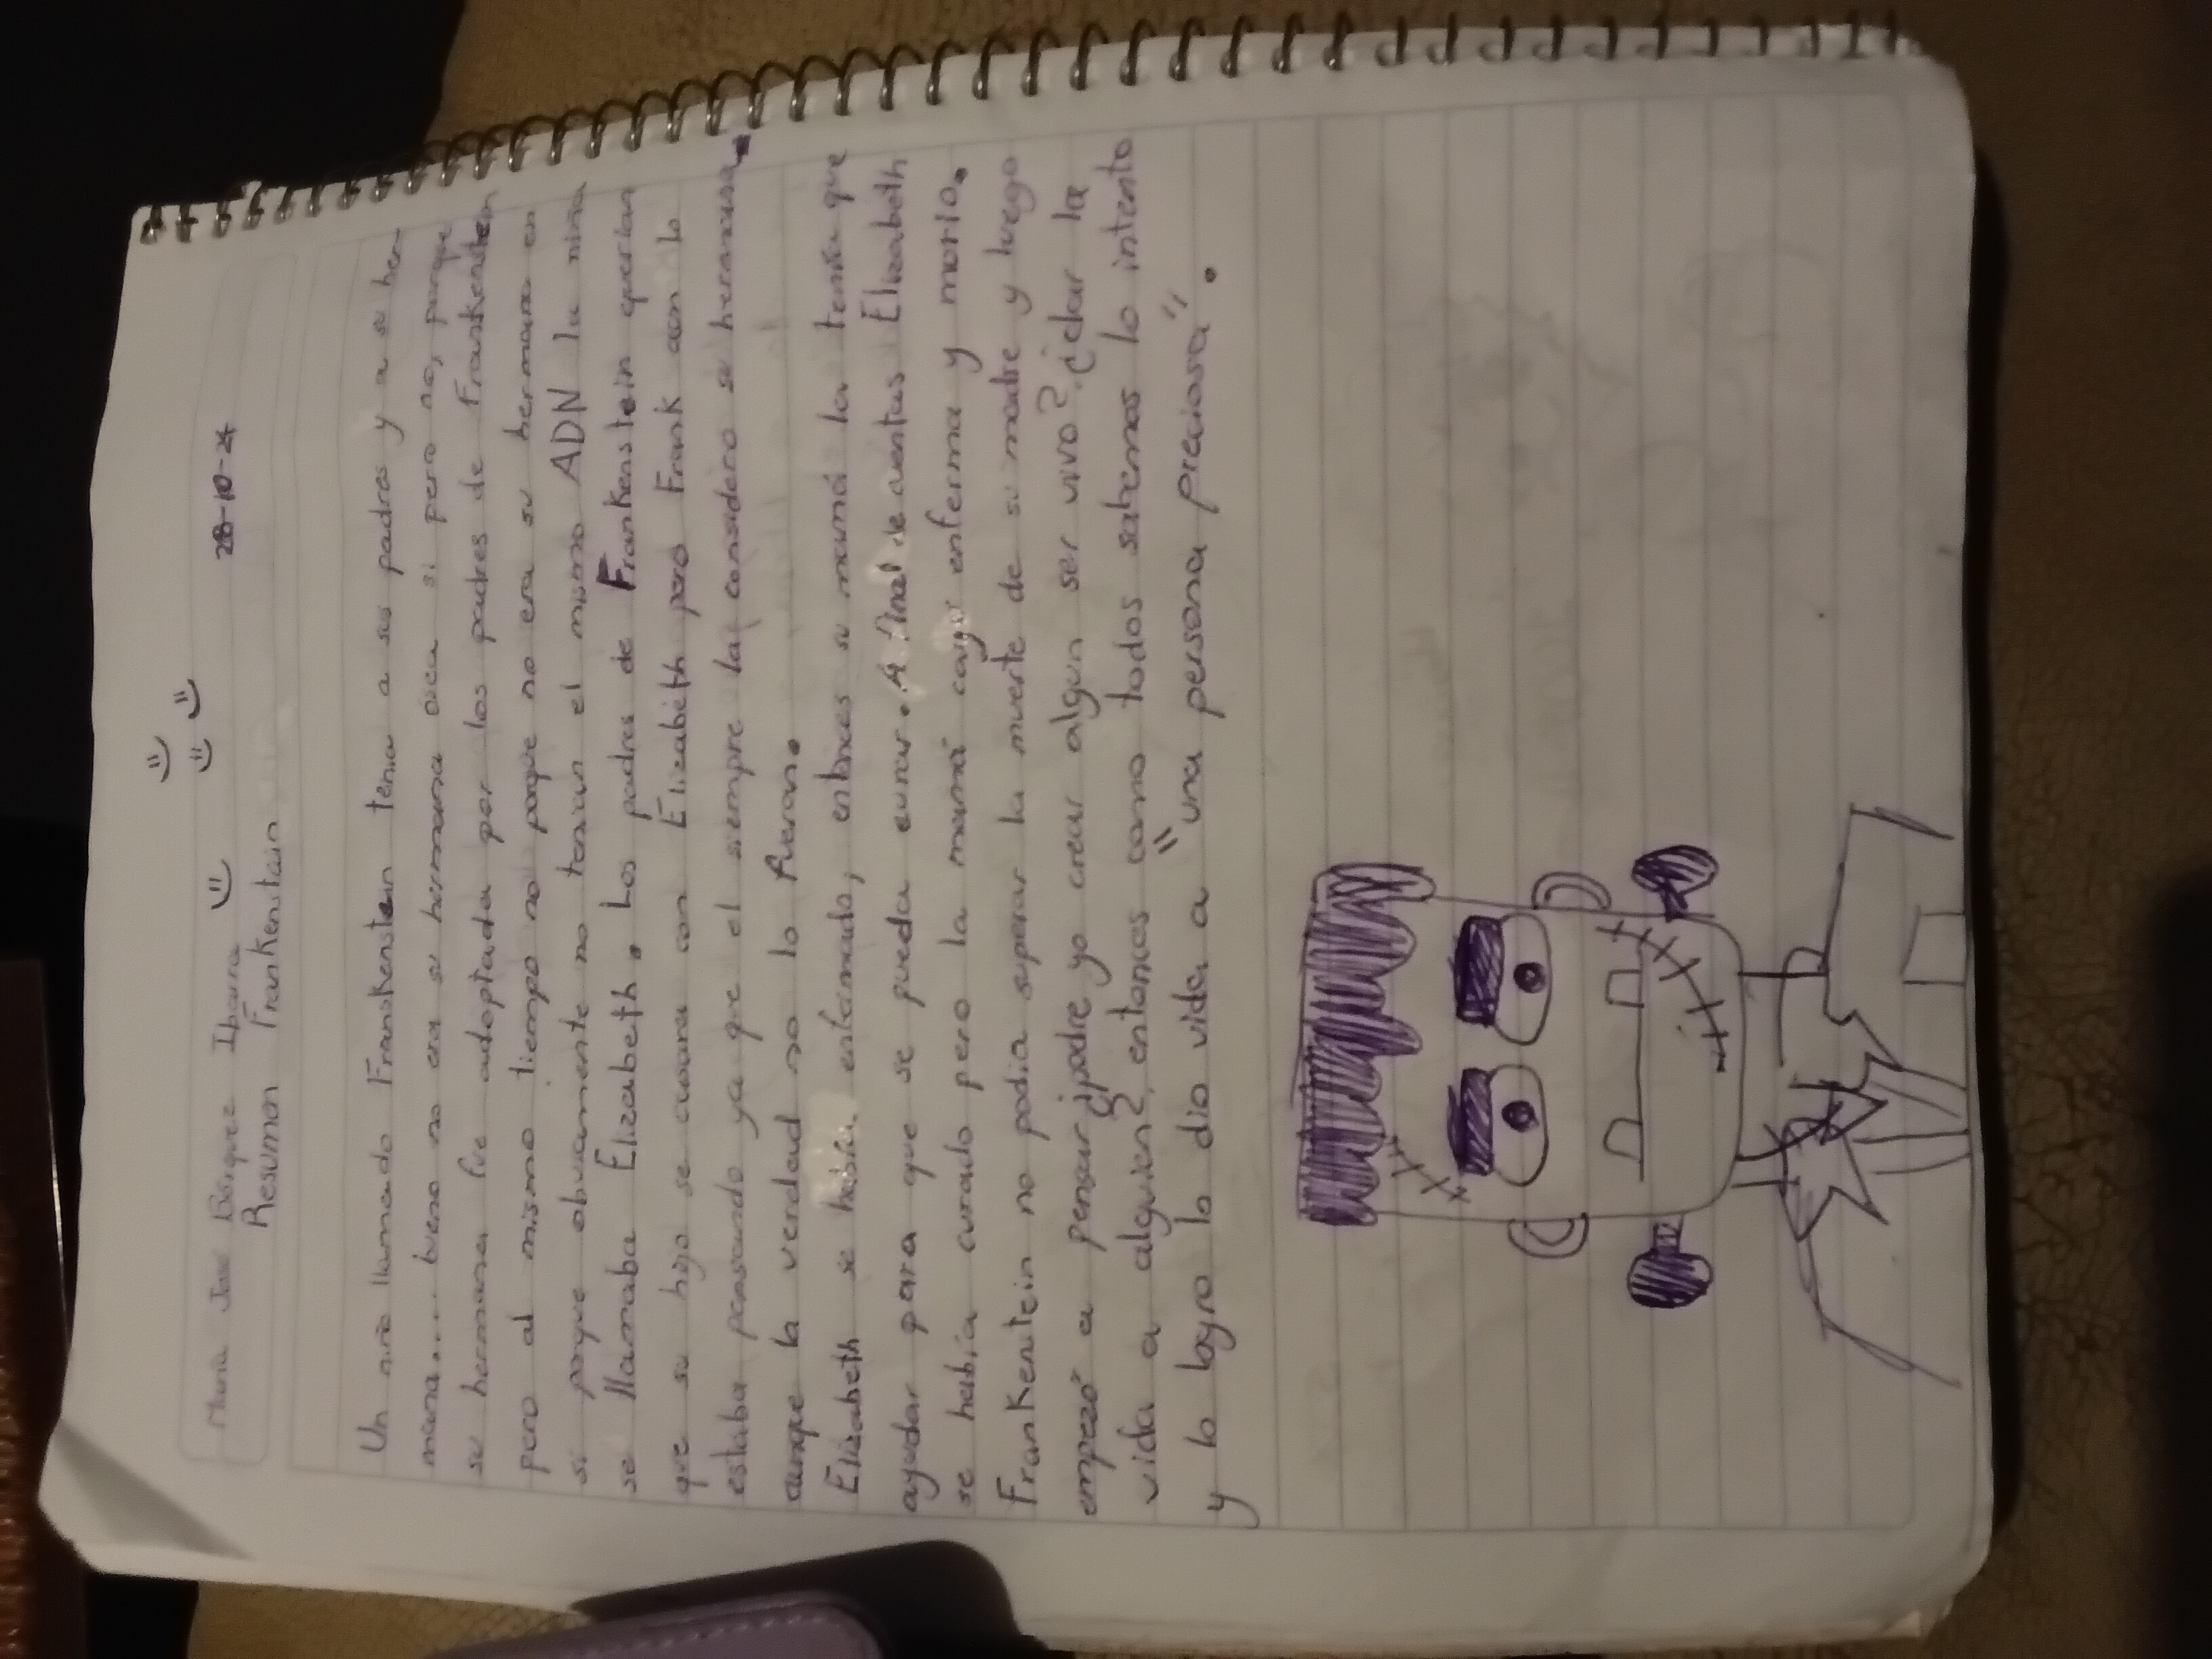 28-10-24
Maria José Bórquez Ibarra
Resumen Frankenstain
Un niño llamado Frankenstein tenia a sus padres y a su her-
mana.... bueno no era su hermana osea si pero no, porque
su hermana fue adoptada por los padres de Frankenstein
pero al mismo tiempo no porque no era su hermana en
si porque obviamente no tenian el mismo ADN la niña
se llamaba Elizabeth. Los padres de Frankenstein querian
que su hijo se casara con Elizabeth pero Frank aun lo
estaba pensando ya que el siempre la considero su hermana.
aunque la verdad no lo fueran.
Elisabeth se había enfermado, entonces su mamá la tenia que
ayudar para que se pueda curar. A final de cuentas Elizabeth
se había curado pero la mamá cayo enferma y morio.
Frankenstein no podia superar la muerte de su madre y luego
empezó a pensar ¿podre yo crear algun ser vivo? ¿dar la
vida a alguien?, entonces como todos sabemos lo intento
y lo logro le dio vida a "una persona preciosa".